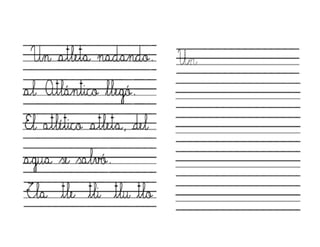 Un atleta nadando.
al Atlántico llegó.
El atlético atleta, del
agua se salvó.
Tla tle tli tlu tlo
Un